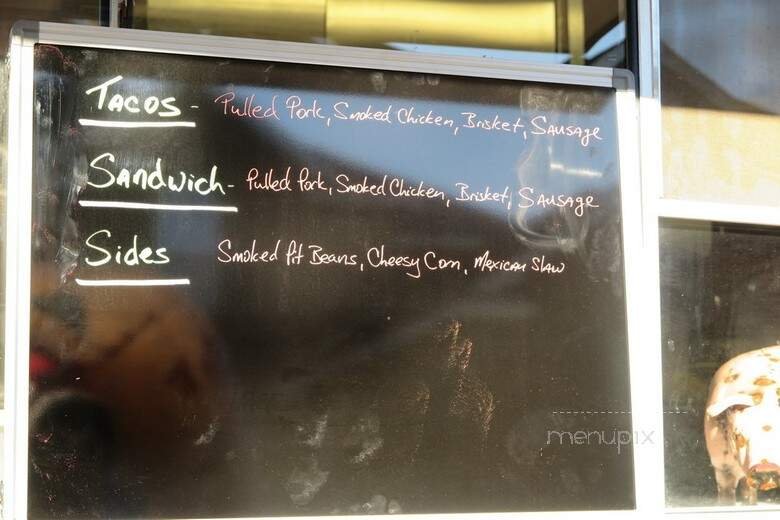 Tacos - Pulled Pork, Smoked Chicken, Brisket, Sausage
Sandwich - Pulled Pork, Smoked Chicken, Brisket, Sausage
Sides Smoked Pit Beans, Cheesy Corn, Mexican Slaw
menupix